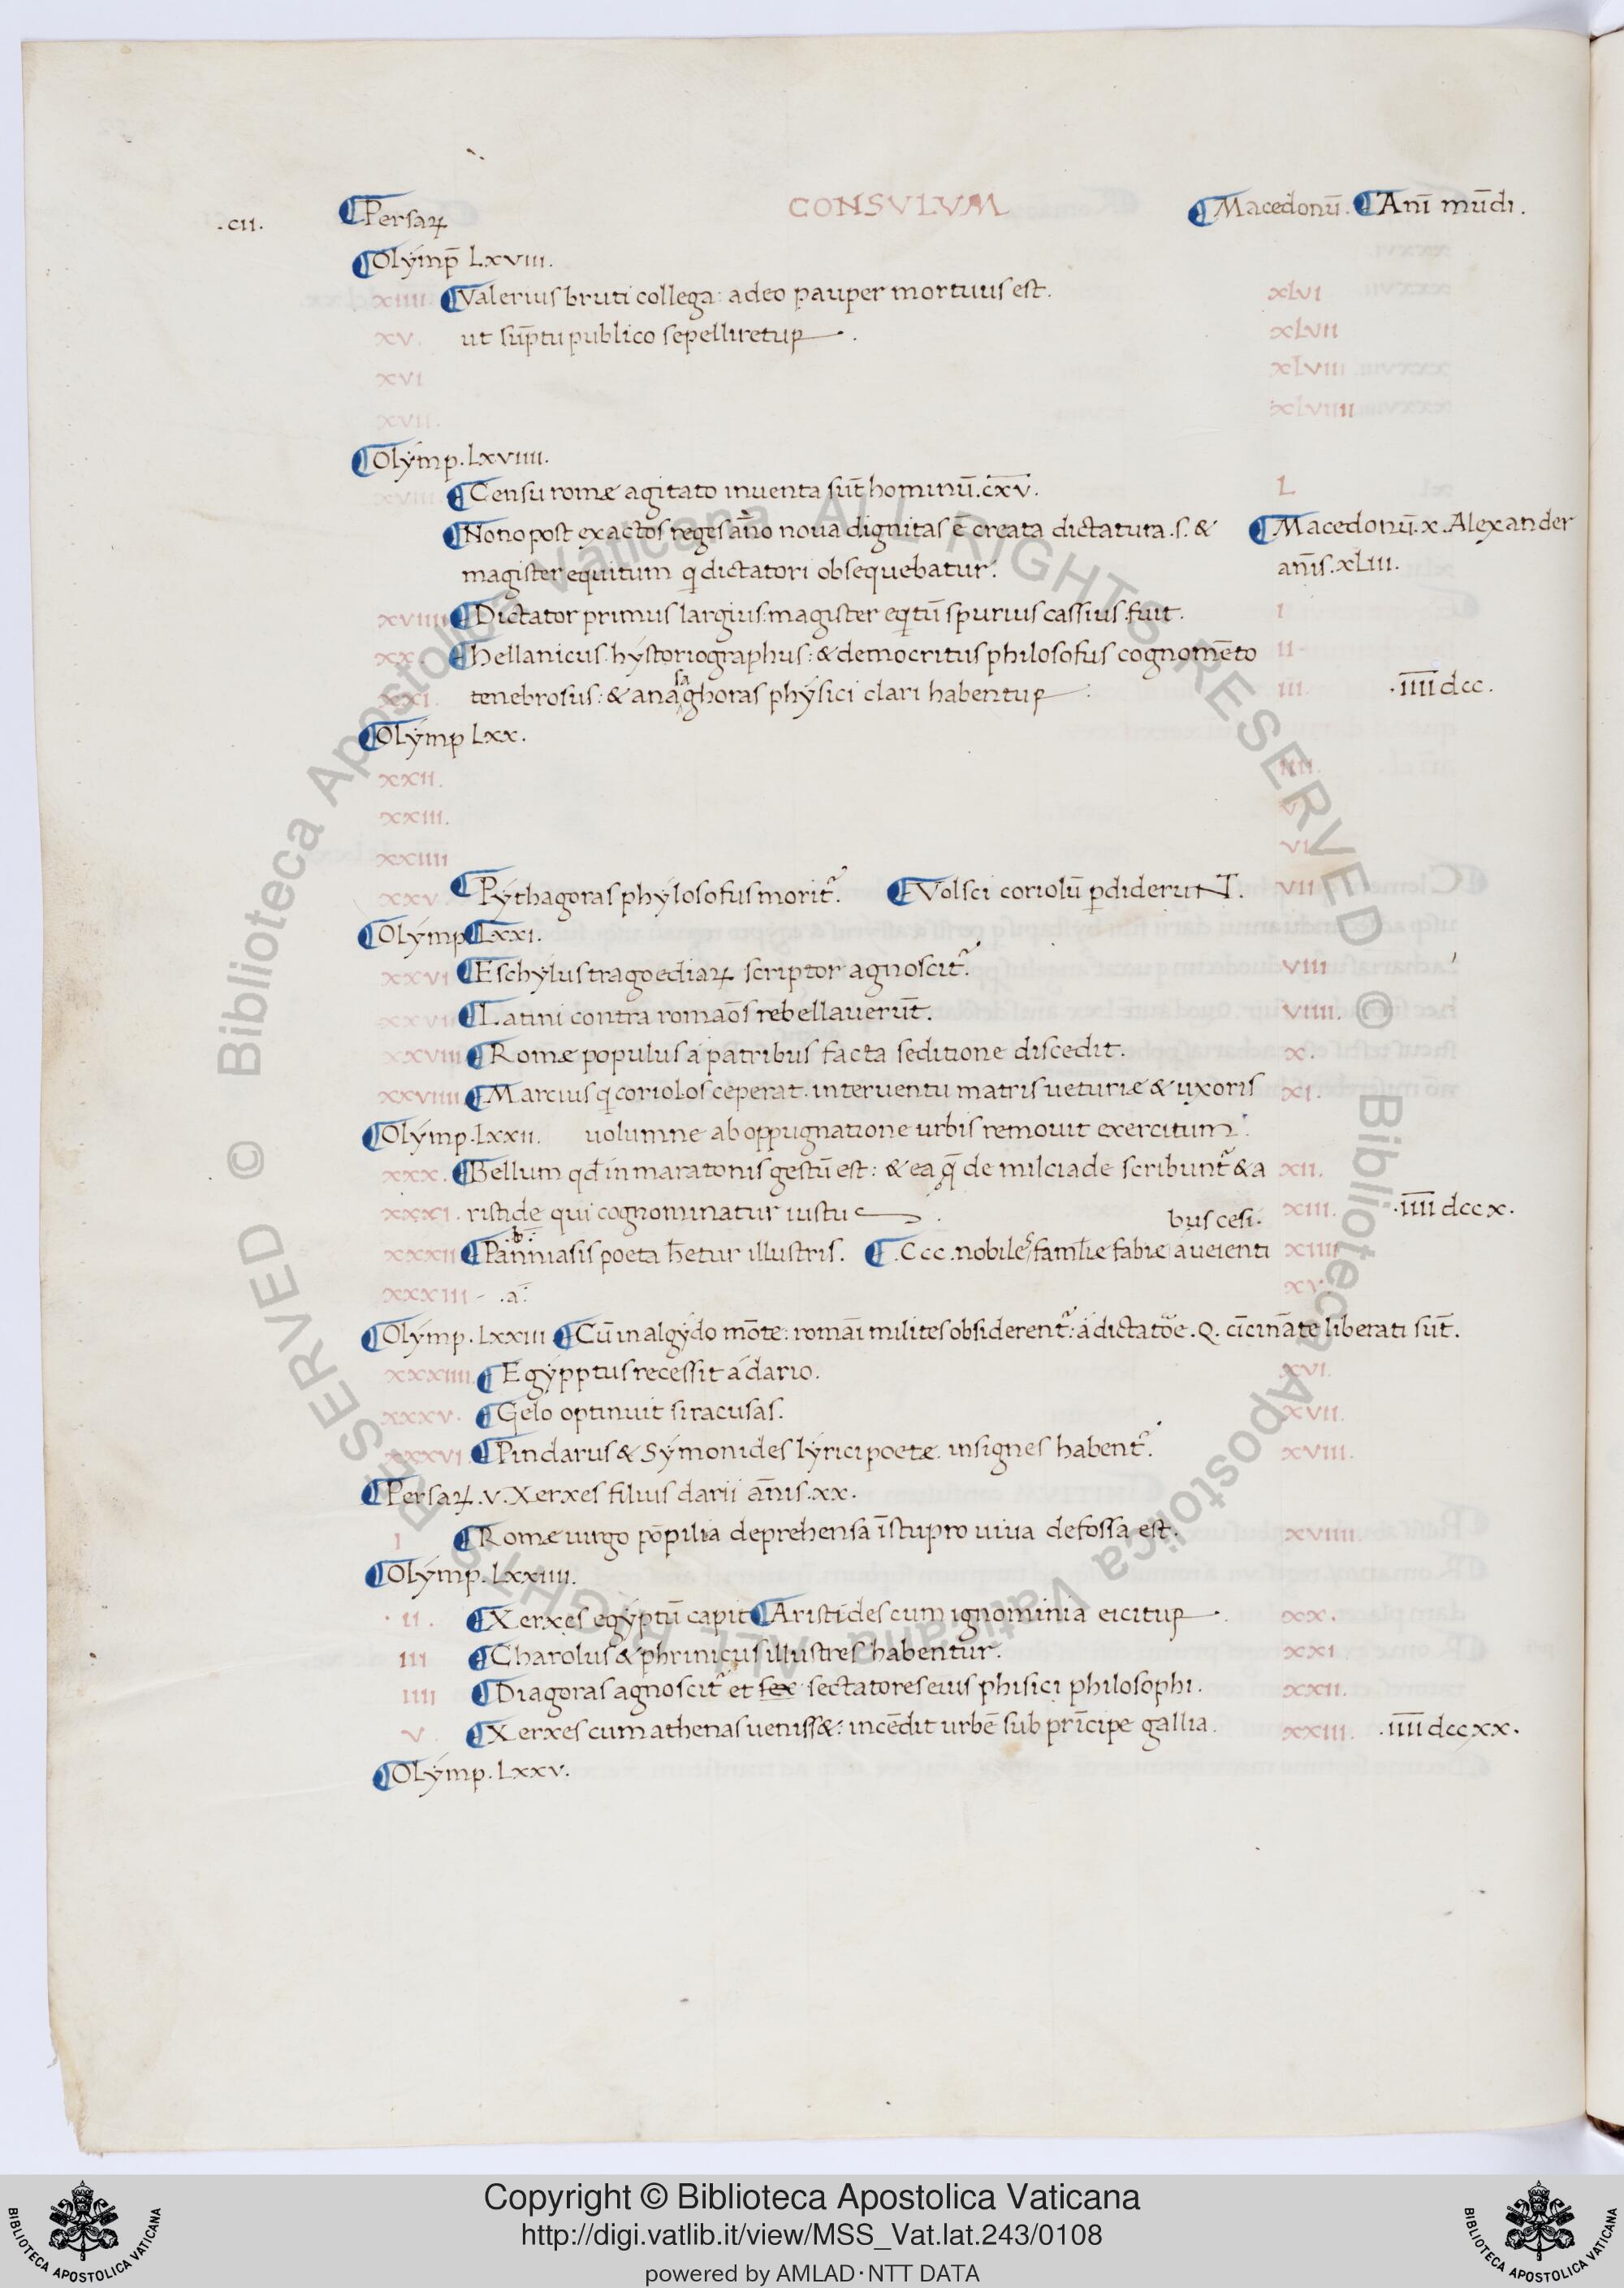 .cii. ¶Persaꝝ CONSVLVM ¶Macedonū. ¶Anī mūdi.
¶Olýmp̄ Lxviii.
xiiii. ¶Valerius bruti collega: adeo pauper mortuus est. xlvi
xv. ut sūptu publico sepelliretur. xLvii
xvi xLviii
xvii. xlviiii
¶Olýmp. Lxviiii.
xviii. ¶Censu romæ agitato inuenta sūt hominū. cxv. L
¶Nono post exactos reges año noua dignitas ē creata dictatura .s. & ¶Macedonū. x. Alexander
magister equitum q dictatori obsequebatur: añis. xLiii.
xviiii ¶Dictator primus largius. magister eqtū spurius cassius fuit. i
xx. ¶hellanicus hýstoriographus: & democritus philosofus cognomēto ii
xxi. tenebrosus: & anasaghoras phýsici clari habentur: iii. .iiii dcc.
¶Olýmp Lxx.
xxii. iiii.
xxiii. v
xxiiii vi
xxv ¶Pýthagoras phýlosofus morit᷑. ¶Volsci coriolū ꝑdiderunT. vii
¶Olýmp ¶Lxxi.
xxvi ¶Eschýlus tragoediaꝝ scriptor agnoscit᷑. viii
xxvii ¶Latini contra romaōs rebellauerūt. viiii.
xxviii ¶Romæ populus á patribus facta seditione discedit. x.
xxviiii ¶Marcius q coriolos ceperat. interuentu matris ueturiæ & uxoris xi.
¶Olýmp. Lxxii. uolumne ab oppugnatione urbis remouit exercitum.
xxx. ¶Bellum qđ in maratonis gestū est: & ea q̄ de milciade scribunt᷑ & a xii.
xxxi. ristide qui cognominatur iustus. xiii. .iiii dccx.
bus cesi.
xxxii ¶Panniasis poeta h̄etur illustris. .b. ¶.Ccc. nobiles familie fabie a ueienti xiiii
xxxiii .a. xv.
¶Olýmp. Lxxiii ¶Cū in algýdo mōte: romāi milites obsiderent᷑: á dictatoē. Q. cīcinn̄ate liberati sūt.
xxxiiii. ¶Egýpptus recessit á dario. xvi.
xxxv. ¶Gelo optinuit siracusas. xvii.
xxxvi ¶Pindarus & Sýmonides lýrici poetæ. insignes habent᷑. xviii.
¶Persaꝝ. v. Xerxes filius darii añis. xx.
i ¶Romæ uirgo pōpilia deprehensa ī stupro uiua defossa est. xviiii
¶Olýmp. Lxxiiii.
ii. ¶Xerxes egýptū capit ¶Aristides cum ignominia eicitur. xx.
iii ¶Charolus & phrinicus illustres habentur. xxi
iiii ¶Diagoras agnoscit᷑ et sex sectatores eius phisici philosophi. xxii.
v. ¶Xerxes cum athenas uenisset: incēdit urbē sub prīcipe gallia. xxiii. .iiii dccxx.
¶Olýmp. Lxxv.
© Biblioteca Apostolica Vaticana ALL RIGHTS RESERVED © Biblioteca Apostolica Vaticana ALL RIGHTS RESERVED
Copyright © Biblioteca Apostolica Vaticana
http://digi.vatlib.it/view/MSS_Vat.lat.243/0108
powered by AMLAD·NTT DATA
BIBLIOTECA APOSTOLICA VATICANA
BIBLIOTECA APOSTOLICA VATICANA